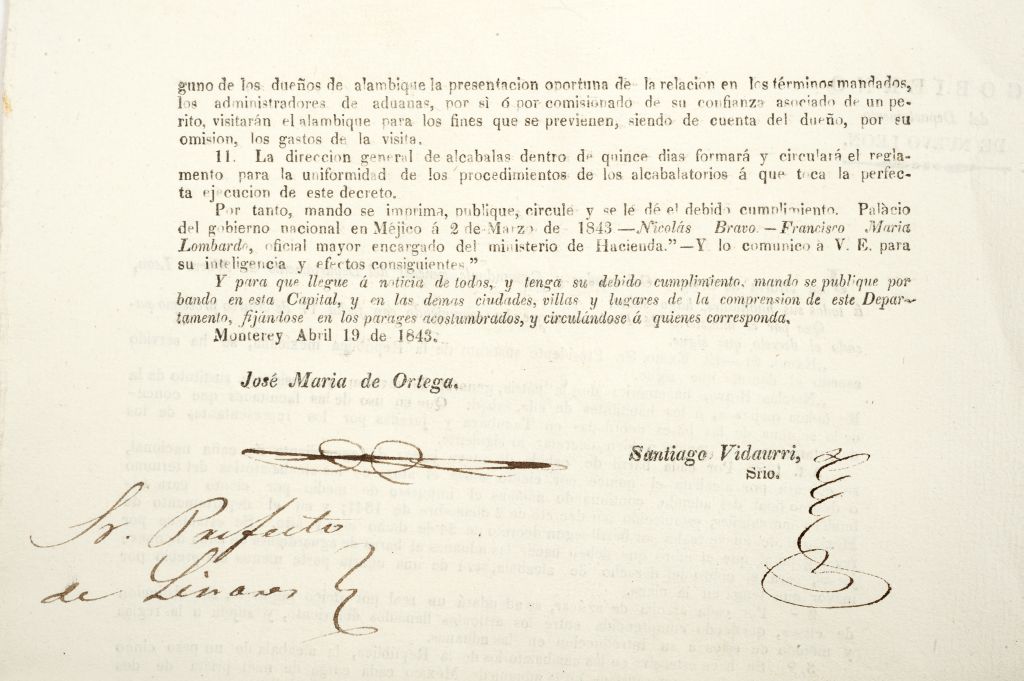 guno de los dueños de alambique la presentacion oportuna de la relacion en los términos mandados,
los administradores de aduanas, por sì ó por comisionado de su confianza asociado de un pe-
rito, visitarán el alambique para los fines que se previenen, siendo de cuenta del dueño, por su
omision, los gastos de la visita.
11. La direccion general de alcabalas dentro de quince dias formará y circulará el regla-
mento para la uniformidad de los procedimientos de los alcabalatorios á que toca la perfec-
ta ejecucion de este decreto.
Por tanto, mando se imprima, publique, circule y se le dé el debido cumplimiento. Palàcio
del gobierno nacional en Méjico á 2 de Marzo de 1843—Nicolás Bravo.—Francisco Maria
Lombardo, oficial mayor encargado del ministerio de Hacienda."—Y lo comunico à V. E. para
su inteligencia y efectos consiguientes"
Y para que llegue á noticia de todos, y tenga su debido cumplimiento, mando se publique por
bando en esta Capital, y en las demas ciudades, villas y lugares de la comprension de este Depar-
tamento, fijándose en los parages acostumbrados, y circulándose á quienes corresponda.
Monterey Abril 19 de 1843.
José Maria de Ortega.
Santiago Vidaurri,
Srio.
Sr. Prefecto
de Linares